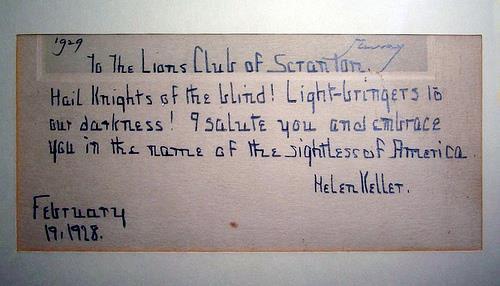 1929
To The Lions Club of Scranton.
Hail Knights of the blind! Light-bringers to
our darkness! I salute you and embrace
you in the name of the sightless of America.
Helen Keller.
February
19, 1928.